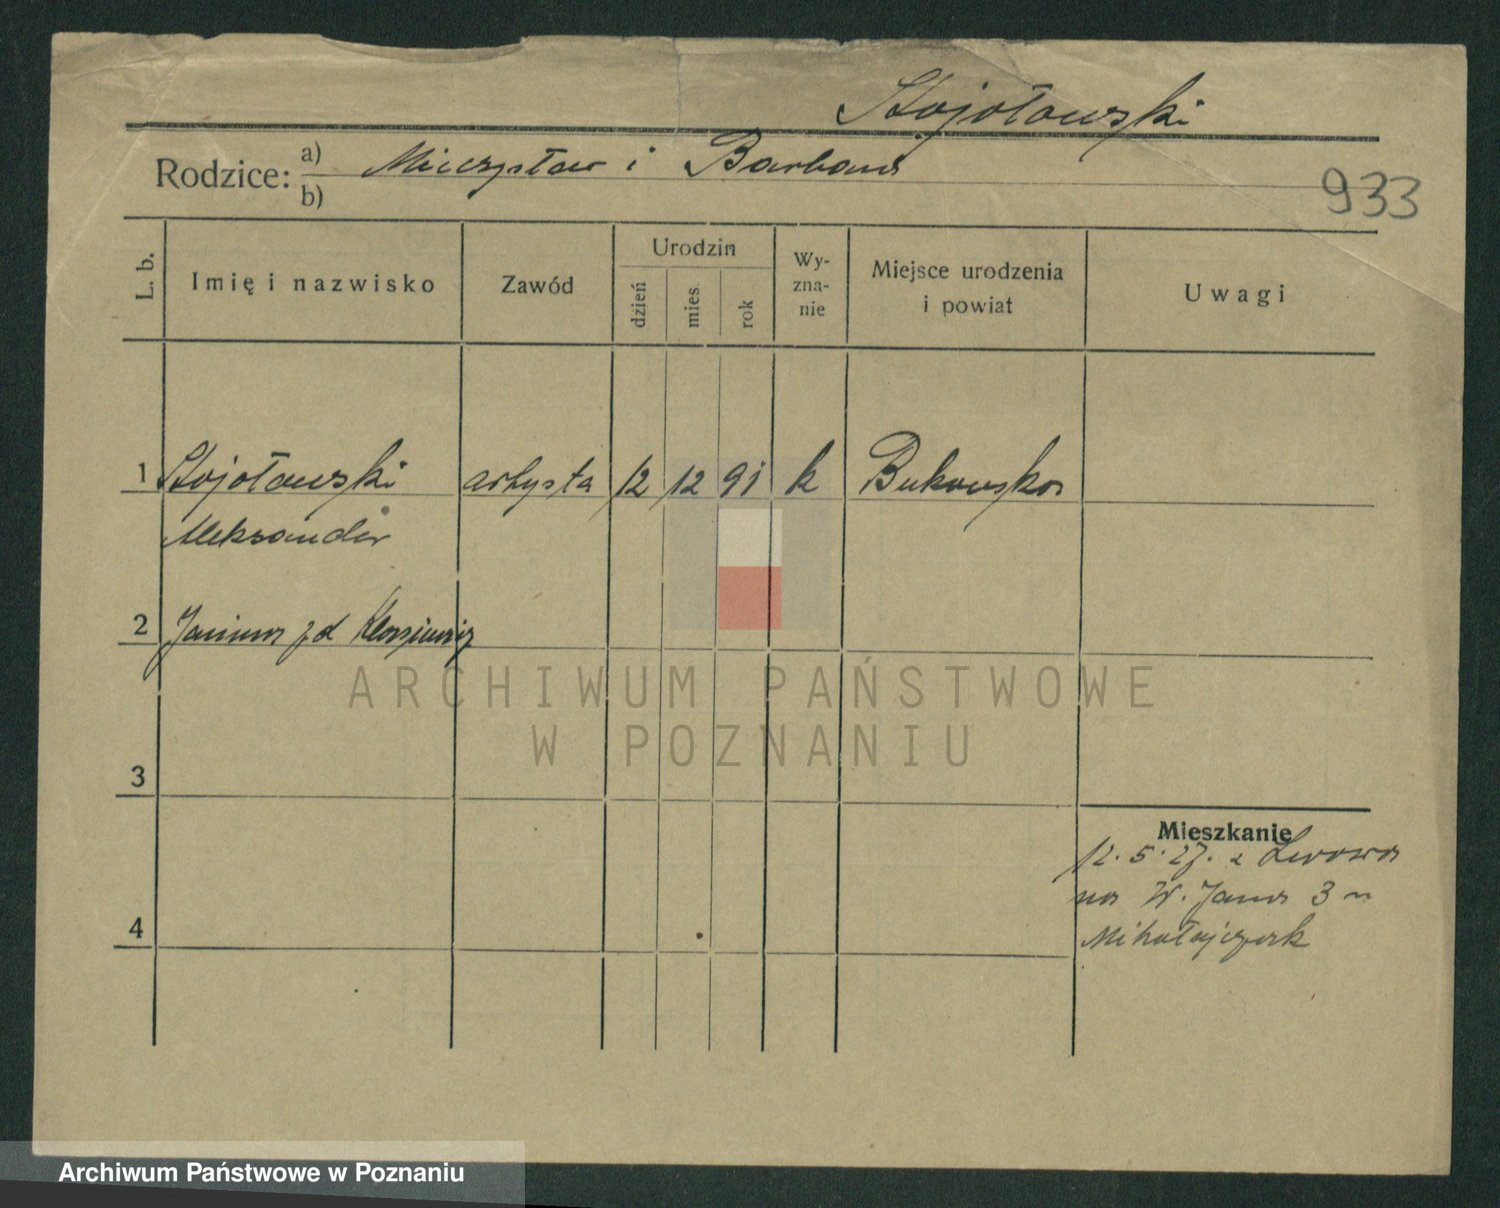 Stojołowski
Rodzice: a) Mieczysław i Barbara
b)
933
L. b.
Imię i nazwisko
Zawód
Urodzin
dzień
mies.
rok
Wy-
zna-
nie
Miejsce urodzenia
i powiat
Uwagi
1 Stojołowski artysta 12 12 91 k Bukowsko
Aleksander
2 Janina zd
ARCHIWUM PAŃSTWOWE
W POZNANIU
3
Mieszkanie
12.5.27. z Lwowa
na W. Jana 3 m
Mikołajczak
4
Archiwum Państwowe w Poznaniu